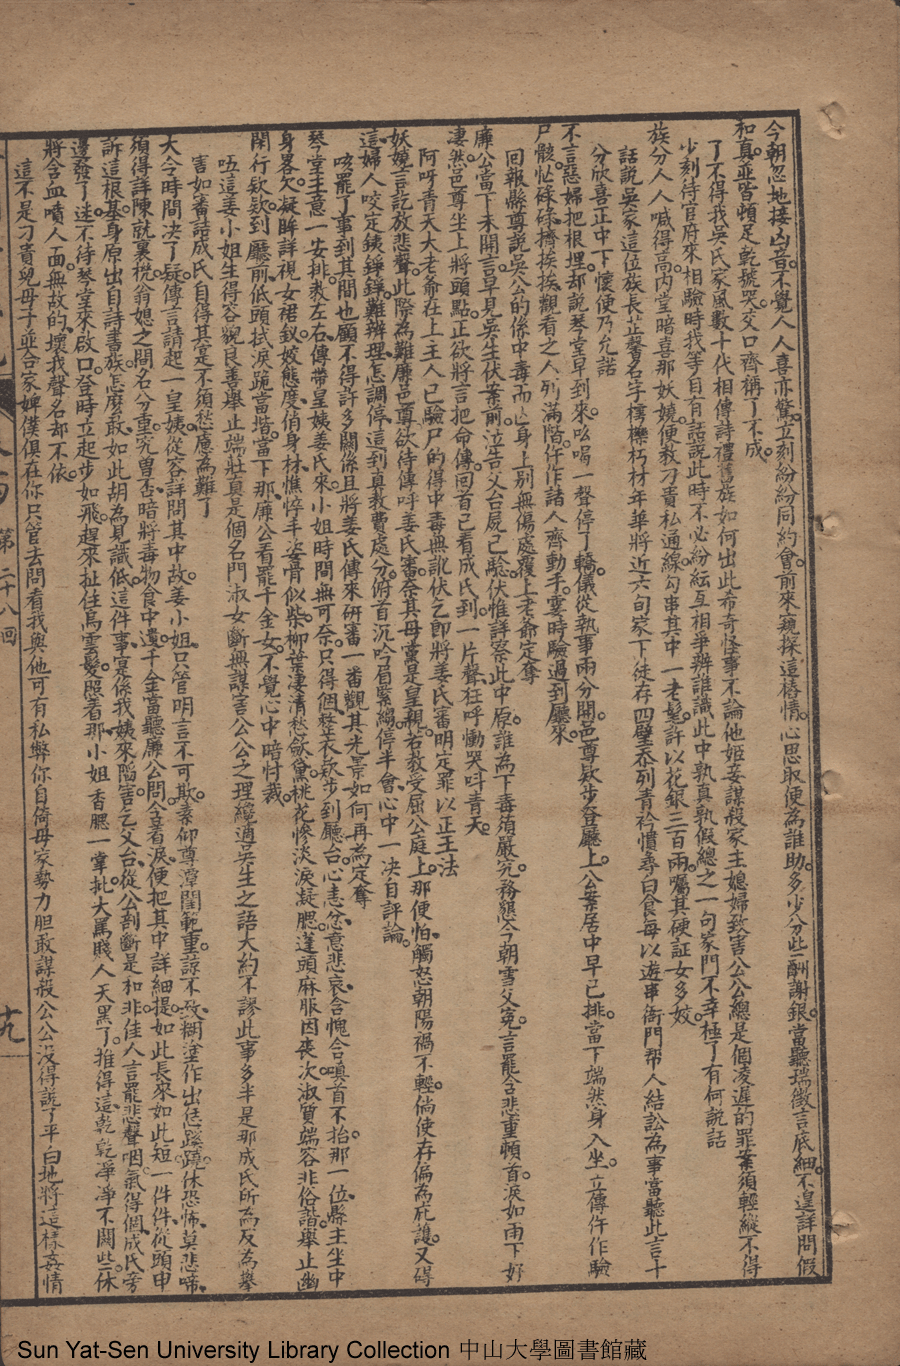 今朝忽地接凶音。不覺人人喜亦驚。立刻紛紛同約會。前來窺探這樁情。心思取便為誰助。多少分些酬謝銀。當聽瑞徵言底細。不遑詳問假
和真。並皆頓足乾號哭。交口齊稱了不成。
了不得我吳氏家風數十代相傳詩禮舊族如何出此希奇怪事不論他姬妾謀殺家主媳婦致害公公總是個凌遲的罪案須輕縱不得
少刻待官府來相驗時我等自有話說此時不必紛紜互相爭辨誰識此中孰真孰假總之一句家門不幸極了有何說話
族分人人喊得高。內堂暗喜那妖嬈。便教刁賁私通線。勾串其中一老髦。許以花銀三百兩。囑其硬証女多姣。
話說吳家這位族長芷馨名字樗櫟朽材年華將近六旬家下徒存四壁忝列青衿慣尋白食每以遊串衙門帮人結訟為事當聽此言十
分欣喜正中下懷便乃允諾
不言惡婦把根埋。却說琴堂早到來。吆喝一聲停了轎。儀從執事兩分開。邑尊欵步登廳上。公案居中早已排。當下端然身入坐。立傳仵作驗
尸骸。忙碌碌。擠挨挨。觀看之人列滿階。仵作諸人齊動手。霎時驗過到廳來。
回報縣尊說吳公的係中毒而亡身上別無傷處覆上老爺定奪
廉公當下未開言。早見吳生伏案前。泣告父台屍已驗。伏惟詳察此中原。誰為下毒須嚴究。務懇今朝雪父冤。言罷今悲重頓首。淚如雨下好
淒然。邑尊坐上將頭點。正欲將言把命傳。回首已看成氏到。一片聲。狂呼慟哭呌青天。
阿呀青天大老爺在上主人已驗尸的得中毒無訛伏乞即將姜氏審明定罪以正王法
妖嬈言訖放悲聲。此際為難廉邑尊。欲待傳呼姜氏審。奈其母黨是皇親。若教受屈公庭上。那便怕。觸怒朝陽禍不輕。倘使存偏為庇護。又碍
這婦人咬定鉄錚錚。難辦理。怎調停。這到真教費處分。俯首沉吟眉緊縐。停半會。心中一决自評論。
咳罷了事到其間也顧不得許多關係且將姜氏傳來研審一番觀其光景如何再為定奪
琴堂主意一安排。教左右。傳帶皇姨姜氏來。小姐時間無可奈。只得個。整衣欵步到廳台。心恚忿。意悲哀。含愧含嗔首不抬。那一位。縣主坐中
身畧欠。凝眸詳視女裙釵。姣態度。俏身材。憔悴手姿骨似柴。柳葉淒清愁歛黛。桃花慘淡淚凝腮。蓬頭麻服因喪次。淑質端容非俗諧。舉止幽
閑行欵欵。到廳前。低頭拭淚跪當堦。當下那廉公看罷千金女。不覺心中暗忖裁。
咓這姜小姐生得容貌良善舉止端壯真是個名門淑女斷無謀害公公之理纔適吳生之語大約不謬此事多半是那成氏所為反為舉
害如審詰成氏自得其寔不須愁慮為難了
大令時間决了疑。傳言請起一皇姨。從容詳問其中故。姜小姐。只管明言不可欺。素仰尊潭閨範重。諒不致。糊塗作出恁蹊蹺。休恐怖。莫悲啼。
須得詳陳就裏梲。翁媳之間名分重。究曾否。暗將毒物食中遺。千金當聽廉公問。含着淚。便把其中詳細提。如此長來如此短。一件件。從頭申
訴這根基。身原出自詩書族。怎麼敢。如此胡為見識低。這件事。寔係我姨來陷害。乞父台。從公剖斷是和非。佳人言罷悲聲咽。氣得個。成氏旁
邊發了迷。不待琴堂來啟口。登時立起步如飛。趕來扯住烏雲髮。照着那。小姐香腮一掌批。大罵賤人天黑了。推得這。乾乾淨淨不関些。休
將含血噴人面。無故的。壞我聲名却不依。
這不是刁賁兒母子並合家婢僕俱在你只管去問看我與他可有私弊你自倚母家勢力胆敢謀殺公公沒得說了平白地將這樣姦情
第二十八回
十九
Sun Yat-Sen University Library Collection 中山大學圖書館藏